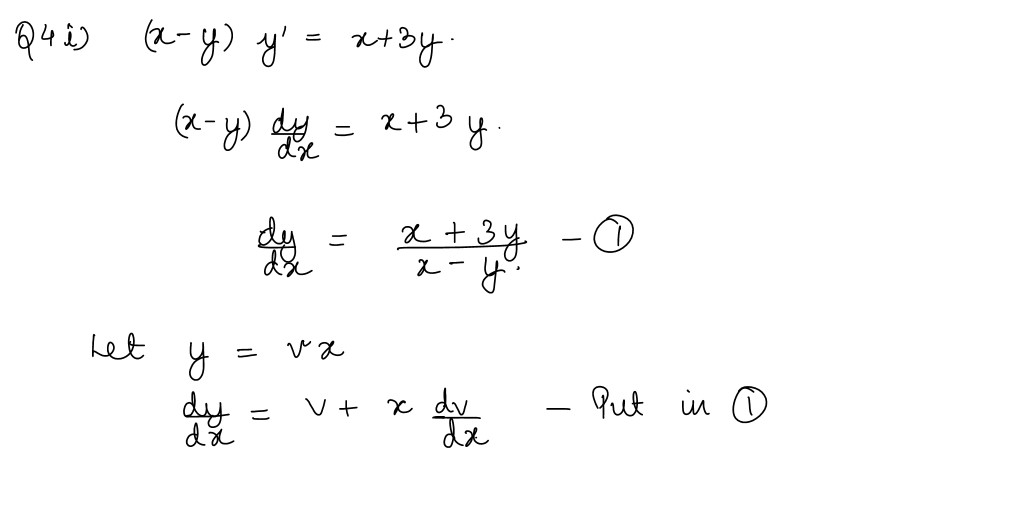 Q4 i) (x-y) y' = x+3y.
(x-y) dy/dx = x+3y.
dy/dx = x + 3y / x - y. - ①
Let y = vx
dy/dx = v + x dv/dx - Put in ①